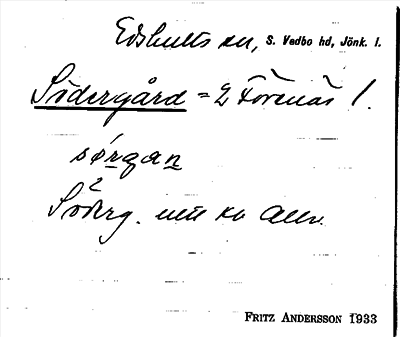 Edshults sn, S. Vedbo hd, Jönk. l.
Södergård = 2 Förenäs 1.
sørgan
2
Söderg. utt ko Allm.
FRITZ ANDERSSON 1933